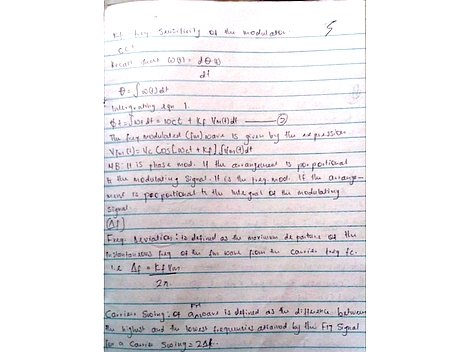 Kf freq Sensitivity of the modulator.
Recall from ω(t) = dθ(t)
dt
θ = ∫ω(t)dt
Integrating eqn 1.
θt = ∫ωt dt = ωct + Kf Vm(t)dt —— ②
The freq modulated (fm) wave is given by the expression
Vfm(t) = Vc Cos[ωct + Kf] ∫Vm(t)dt
NB: It is phase mod. If the arrangement is proportional
to the modulating Signal. It is the freq. mod. If the arrange-
ment is proportional to the Integral of the modulating
Signal.
(Δf)
Freq. deviation: is defined as the maximum departure of the
instantaneous freq of the fm wave from the Carrier freq fc.
i.e Δf = Kf Vm
2π.
Carrier Swing: Of FM wave is defined as the difference between
the highest and the lowest frequencies attained by the FM Signal
for a Carrier Swing = 2Δf.